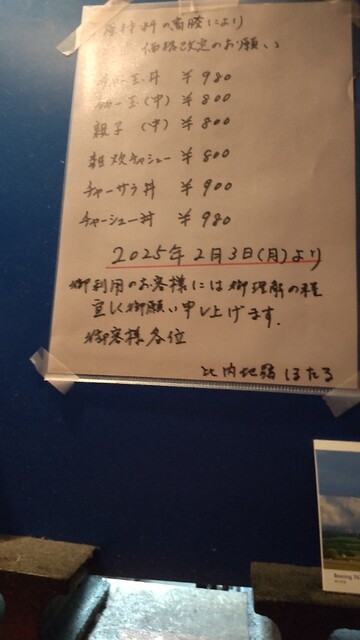 原材料の高騰により
価格改定のお願い
チャー玉丼 ¥980
チャー玉(中) ¥800
親子 (中) ¥800
雑炊チャシュー ¥800
チャーサラ丼 ¥900
チャーシュー丼 ¥980
2025年2月3日(月)より
御利用のお客様には御理解の程
宜しく御願い申し上げます.
御客様各位
比内地鶏 ほたる
Boeing